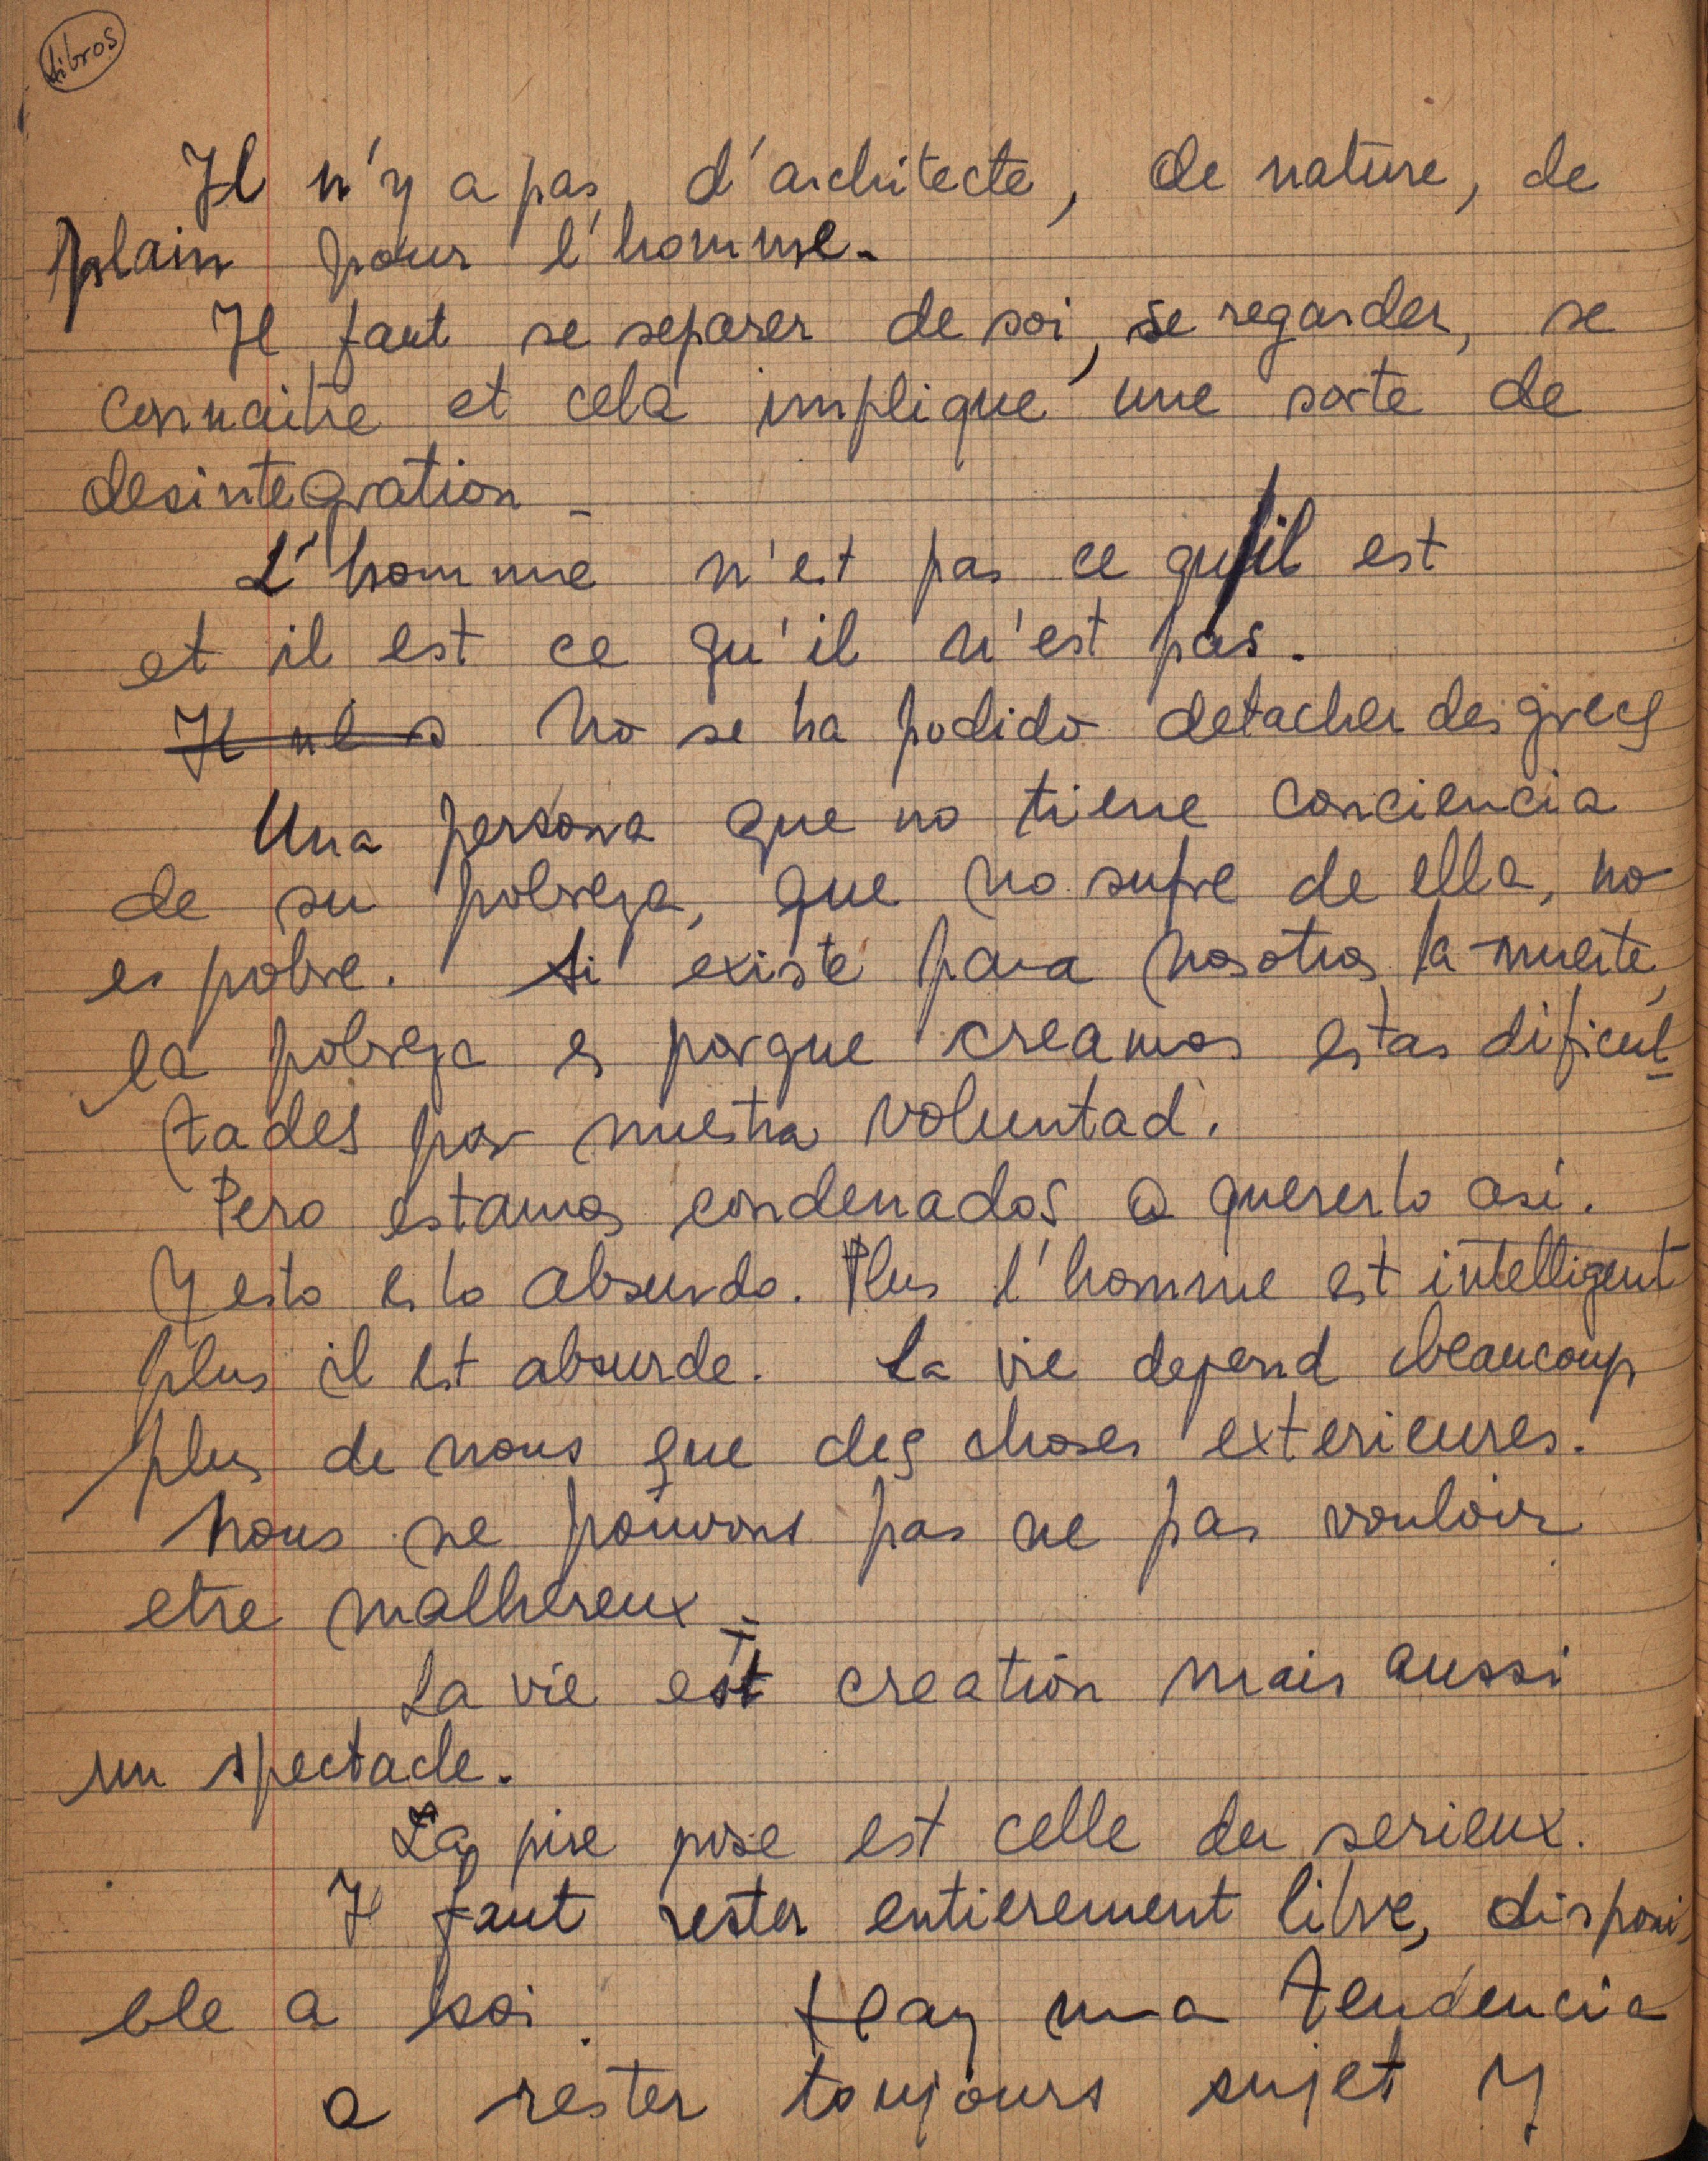 libros
Il n'y a pas d'architecte, de nature, de
plain pour l'homme.
Il faut se separer de soi, se regarder, se
connaitre et cela implique une sorte de
desintegration -
L'homme n'est pas ce qu'il est
et il est ce qu'il n'est pas.
No se ha podido detacher des grecs
Una persona que no tiene conciencia
de su pobreza, que no sufre de ella, no
es pobre. Si existe para nosotros la muerte,
la pobreza es porque creamos estas dificul-
tades por nuestra voluntad.
Pero estamos condenados a quererlo asi.
Y esto es lo absurdo. Plus l'homme est intelligent
plus il est absurde. La vie depend beaucoup
plus de nous que des choses exterieures.
Nous ne pouvons pas ne pas vouloir
etre malhereux -
La vie est creation mais aussi
un spectacle.
La pire pose est celle du serieux.
Il faut rester entierement libre, disponi
ble a soi. Hay una tendencia
a rester toujours sujet y